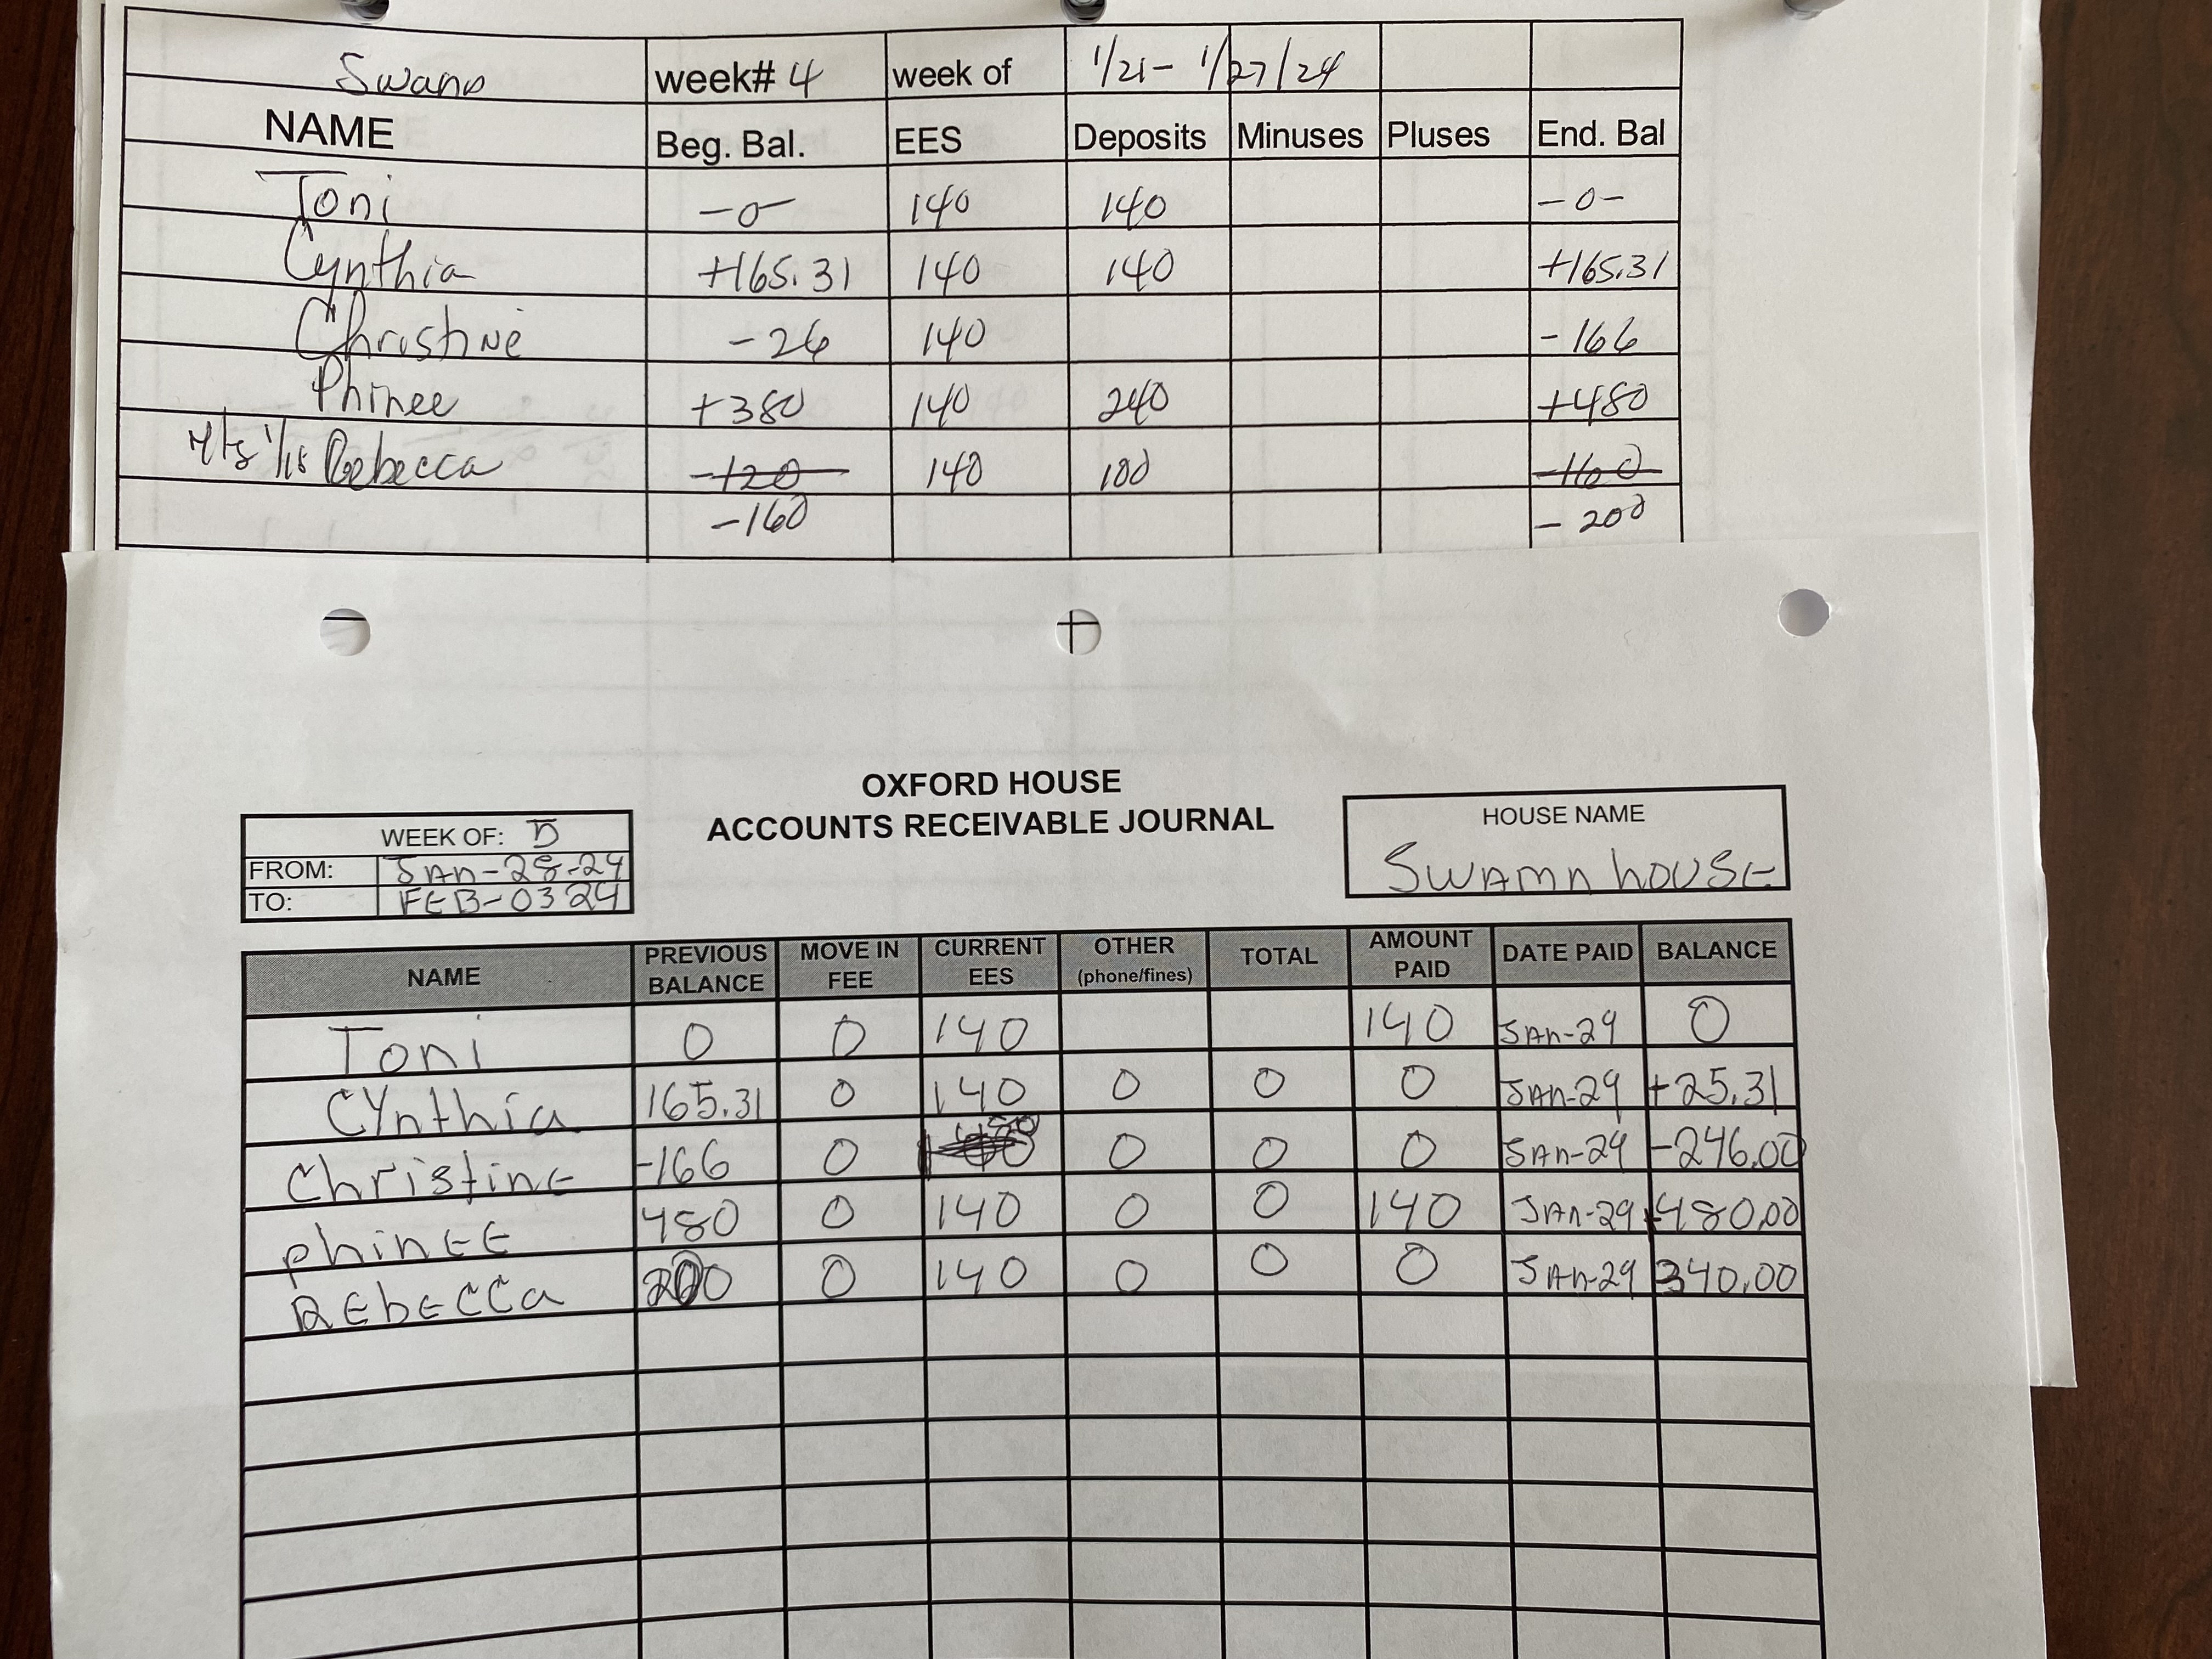 Swans week# 4 week of 1/21 - 1/27/24
NAME Beg. Bal. EES Deposits Minuses Pluses End. Bal
Toni -0- 140 140 -0-
Cynthia +165.31 140 140 +165.31
Christine -26 140 -166
Phinee +380 140 240 +480
1/15 Rebecca -120 140 100 -160
-160 - 200
OXFORD HOUSE
ACCOUNTS RECEIVABLE JOURNAL
WEEK OF: 5
FROM: JAN-28-24
TO: FEB-03 24
HOUSE NAME
SWAMN HOUSE
NAME PREVIOUS BALANCE MOVE IN FEE CURRENT EES OTHER (phone/fines) TOTAL AMOUNT PAID DATE PAID BALANCE
Toni 0 0 140 140 JAN-29 0
CYnthia 165.31 0 140 0 0 0 JAN-29 +25.31
Christine -166 0 0 0 0 JAN-29 -246.00
phinEE 480 0 140 0 0 140 JAN-29 480.00
REbECCa 200 0 140 0 0 0 JAN-29 340.00